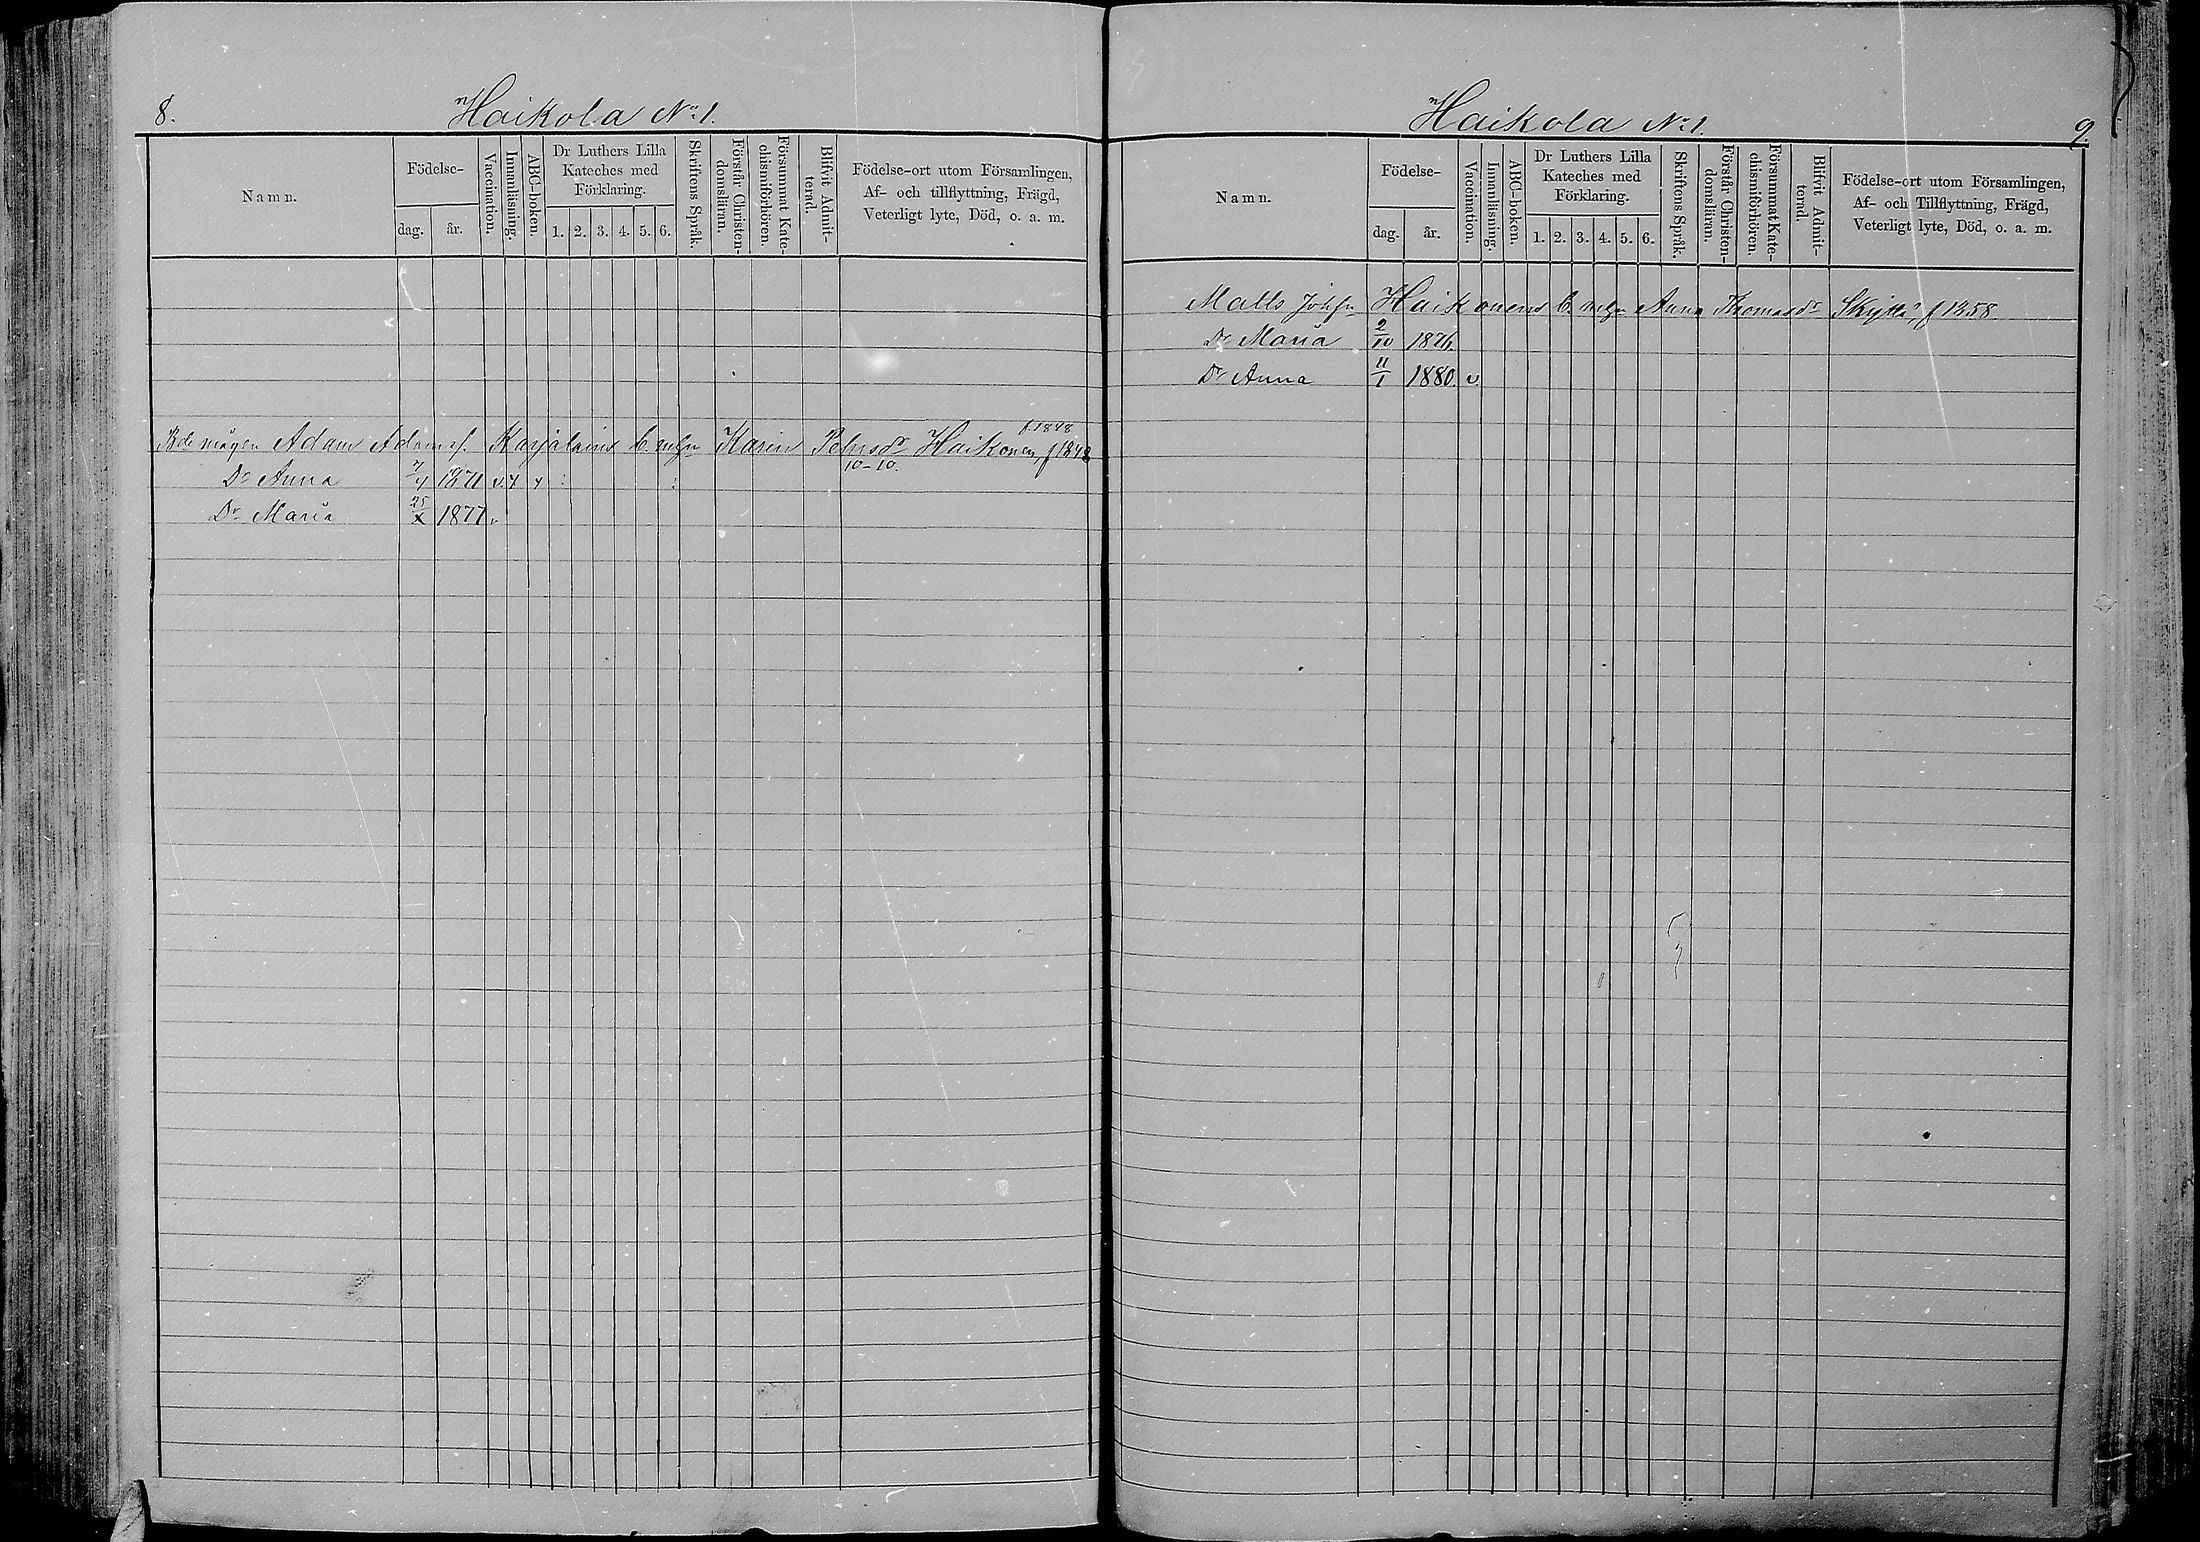 8.
Haikola No 1.
Namn.
Födelse-
dag.
år.
Vaccination.
Innanläsning.
ABC-boken.
Dr Luthers Lilla
Kateches med
Förklaring.
1. 2. 3. 4. 5. 6.
Skriftens Språk.
Förstår Christen-
domsläran.
Försummat Kate-
chismiförhören.
Blifvit Admit-
terad.
Födelse-ort utom Församlingen,
Af- och tillflyttning, Frägd,
Veterligt lyte, Död, o. a. m.
f. 1848
mågen Adam Adamsf. Karjalains b. mhu Karin Petrsdr Haikonen, f 1848
10-10.
Dr Anna 7/4 1871 v. x x
Dr Maria 25/x 1877 v
9.
Haikola No 1.
Namn.
Födelse-
dag.
år.
Vaccination.
Innanläsning.
ABC-boken.
Dr Luthers Lilla
Kateches med
Förklaring.
1. 2. 3. 4. 5. 6.
Skriftens Språk.
Förstår Christen-
domsläran.
Försummat Kate-
chismiförhören.
Blifvit Admit-
terad.
Födelse-ort utom Församlingen,
Af- och Tillflyttning, Frägd,
Veterligt lyte, Död, o. a. m.
Matts Haikonens b. mhu Anna Thomasdr Skyttä, f 1858.
Dr Maria 2/10 1876.
Dr Anna 11/1 1880. v